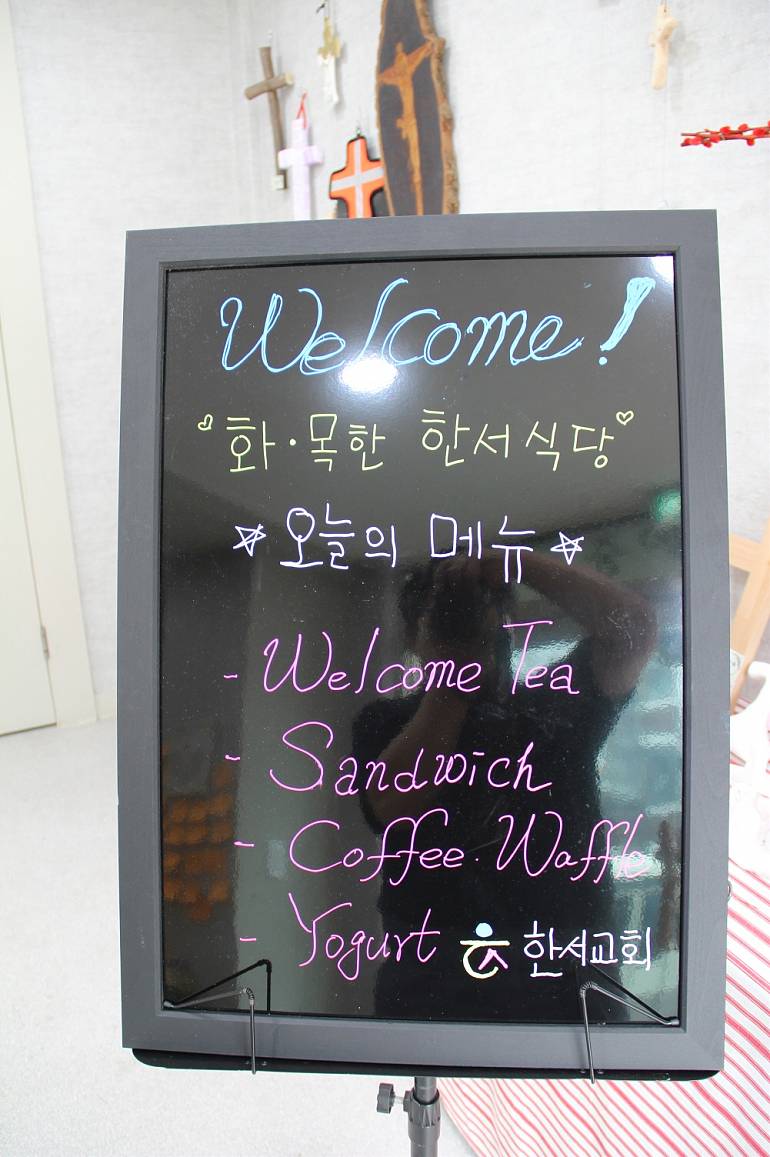 Welcome!
화·목한 한서식당
오늘의 메뉴
- Welcome Tea
- Sandwich
- Coffee·Waffle
- Yogurt 한서교회